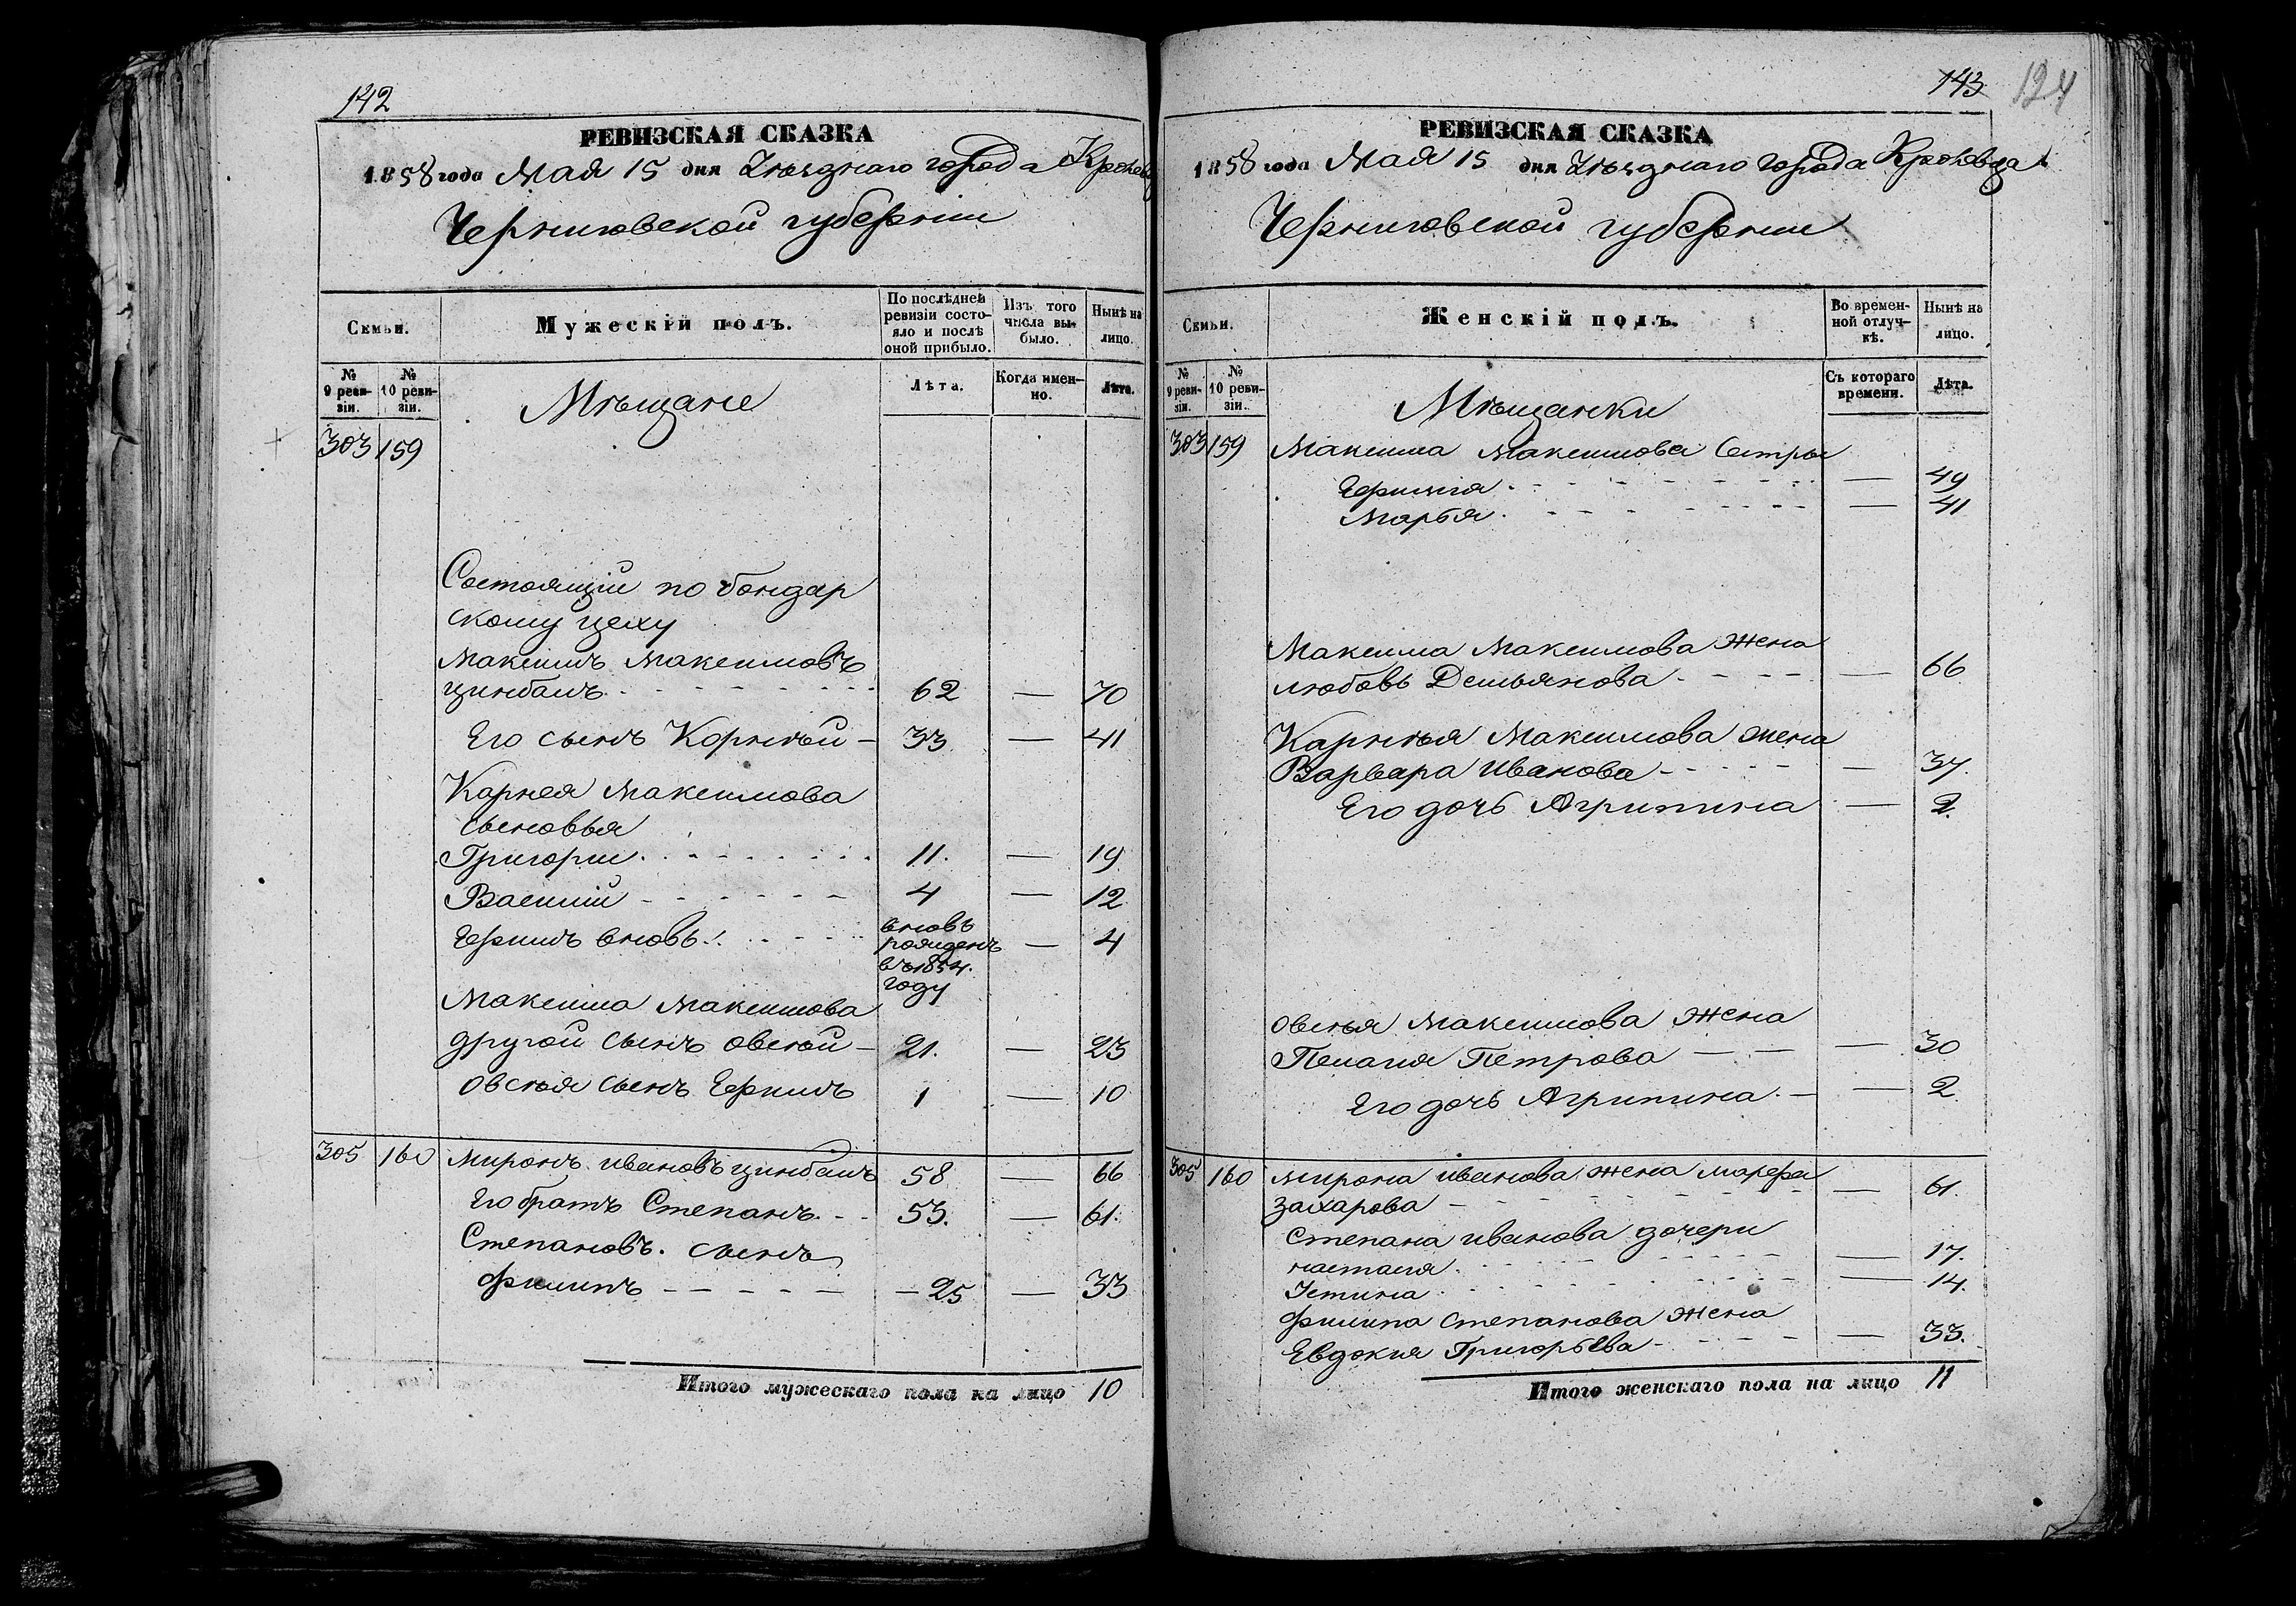 142
РЕВИЗСКАЯ СКАЗКА
1858 года Мая 15 дня Уѣзднаго города Кролевц
Черниговской губерніи
Семьи. Мужескій полъ. По послѣдней ревизіи состояло и послѣ оной прибыло. Изъ того числа выбыло. Нынѣ на лицо.
№ 9 ревизіи. № 10 ревизіи. Мѣщане Лѣта. Когда именно. Лѣта.
303 159
Состоящіи по бондар
скому цеху
Максимъ Максимовъ
цинбалъ 62 — 70
Его сынъ Корнѣй — 33 — 41
Карнея Максимова
сыновья
Григорiи 11. — 19
Василій 4 — 12
Ефимъ вновь вновь рожденъ въ 1854. году — 4
Максима Максимова
другой сынъ Овсѣй — 21. — 23
Овсѣя сынъ Ефимъ 1 — 10
305 160 Миронъ Ивановъ цинбалъ 58 — 66
Его братъ Степанъ 53. — 61.
Степановъ. сынъ
Филипъ — 25 — 33
Итого мужескаго пола на лицо 10
143 124
РЕВИЗСКАЯ СКАЗКА
1858 года Мая 15 дня Уѣзднаго города Кролевца
Черниговской губерніи
Семьи. Женскій полъ. Во временной отлучкѣ. Нынѣ на лицо.
№ 9 ревизіи. № 10 ревизіи. Мѣщанки Съ котораго времени. Лѣта.
303 159 Максима Максимова Сестры
Ефимия — 49
Марья — 41
Максима Максимова жена
Любовь Демьянова — 66
Карнѣя Максимова жена
Варвара Иванова — 37.
Его дочь Агрипина — 2.
Овсѣя Максимова жена
Пелагия Петрова — 30
Его дочь Агрипина — 2
305 160 Мирона Иванова жена Марфа
Захарова — 61.
Степана Иванова дочери
Настасия — 17.
Устина — 14.
Филипа Степанова жена
Евдокия Григорьева — 33.
Итого женскаго пола на лицо 11